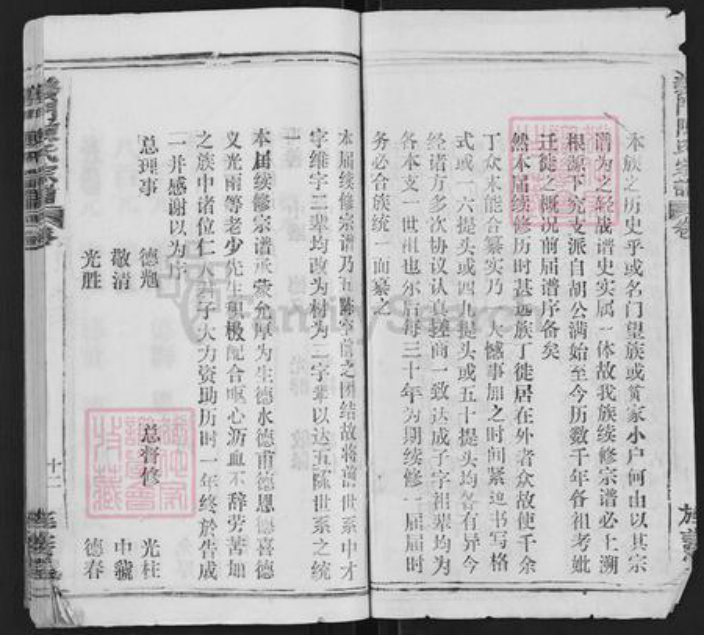 本族之历史乎或名门望族或贫家小户何由以其宗
谱为之轻战谱史实属一体故我族续修宗谱必上溯
根源下究支派自胡公满始至今历数千年各祖考妣
迁徒之概况前届谱序备矣
然本届续修历时甚远族丁徒居在外者众故使千余
丁众未能合纂实乃一大憾事加之时间紧迫书写格
式或一六提头或四九提头或五十提头均各有异今
经诸方多次协议认真磋商一致达成子字祖辈均为
各本支一世祖也尔后每三十年为期续修一届届时
务必合族统一面纂之
本届续修宗谱乃五陈空前之团结故将前世系中才
字维字三辈均改为材为二字辈以达五陈世系之统
一
本届续修宗谱承蒙允厚为生德水德甫德恩德喜德
义光雨等老少先生积极配合呕心沥血不辞劳苦加
之族中诸位仁人君子大力资助历时一年终於告成
一并感谢以为序
总理事 德
敬清
光胜
总督修 光柱
中
德春
十二
FamilySearch